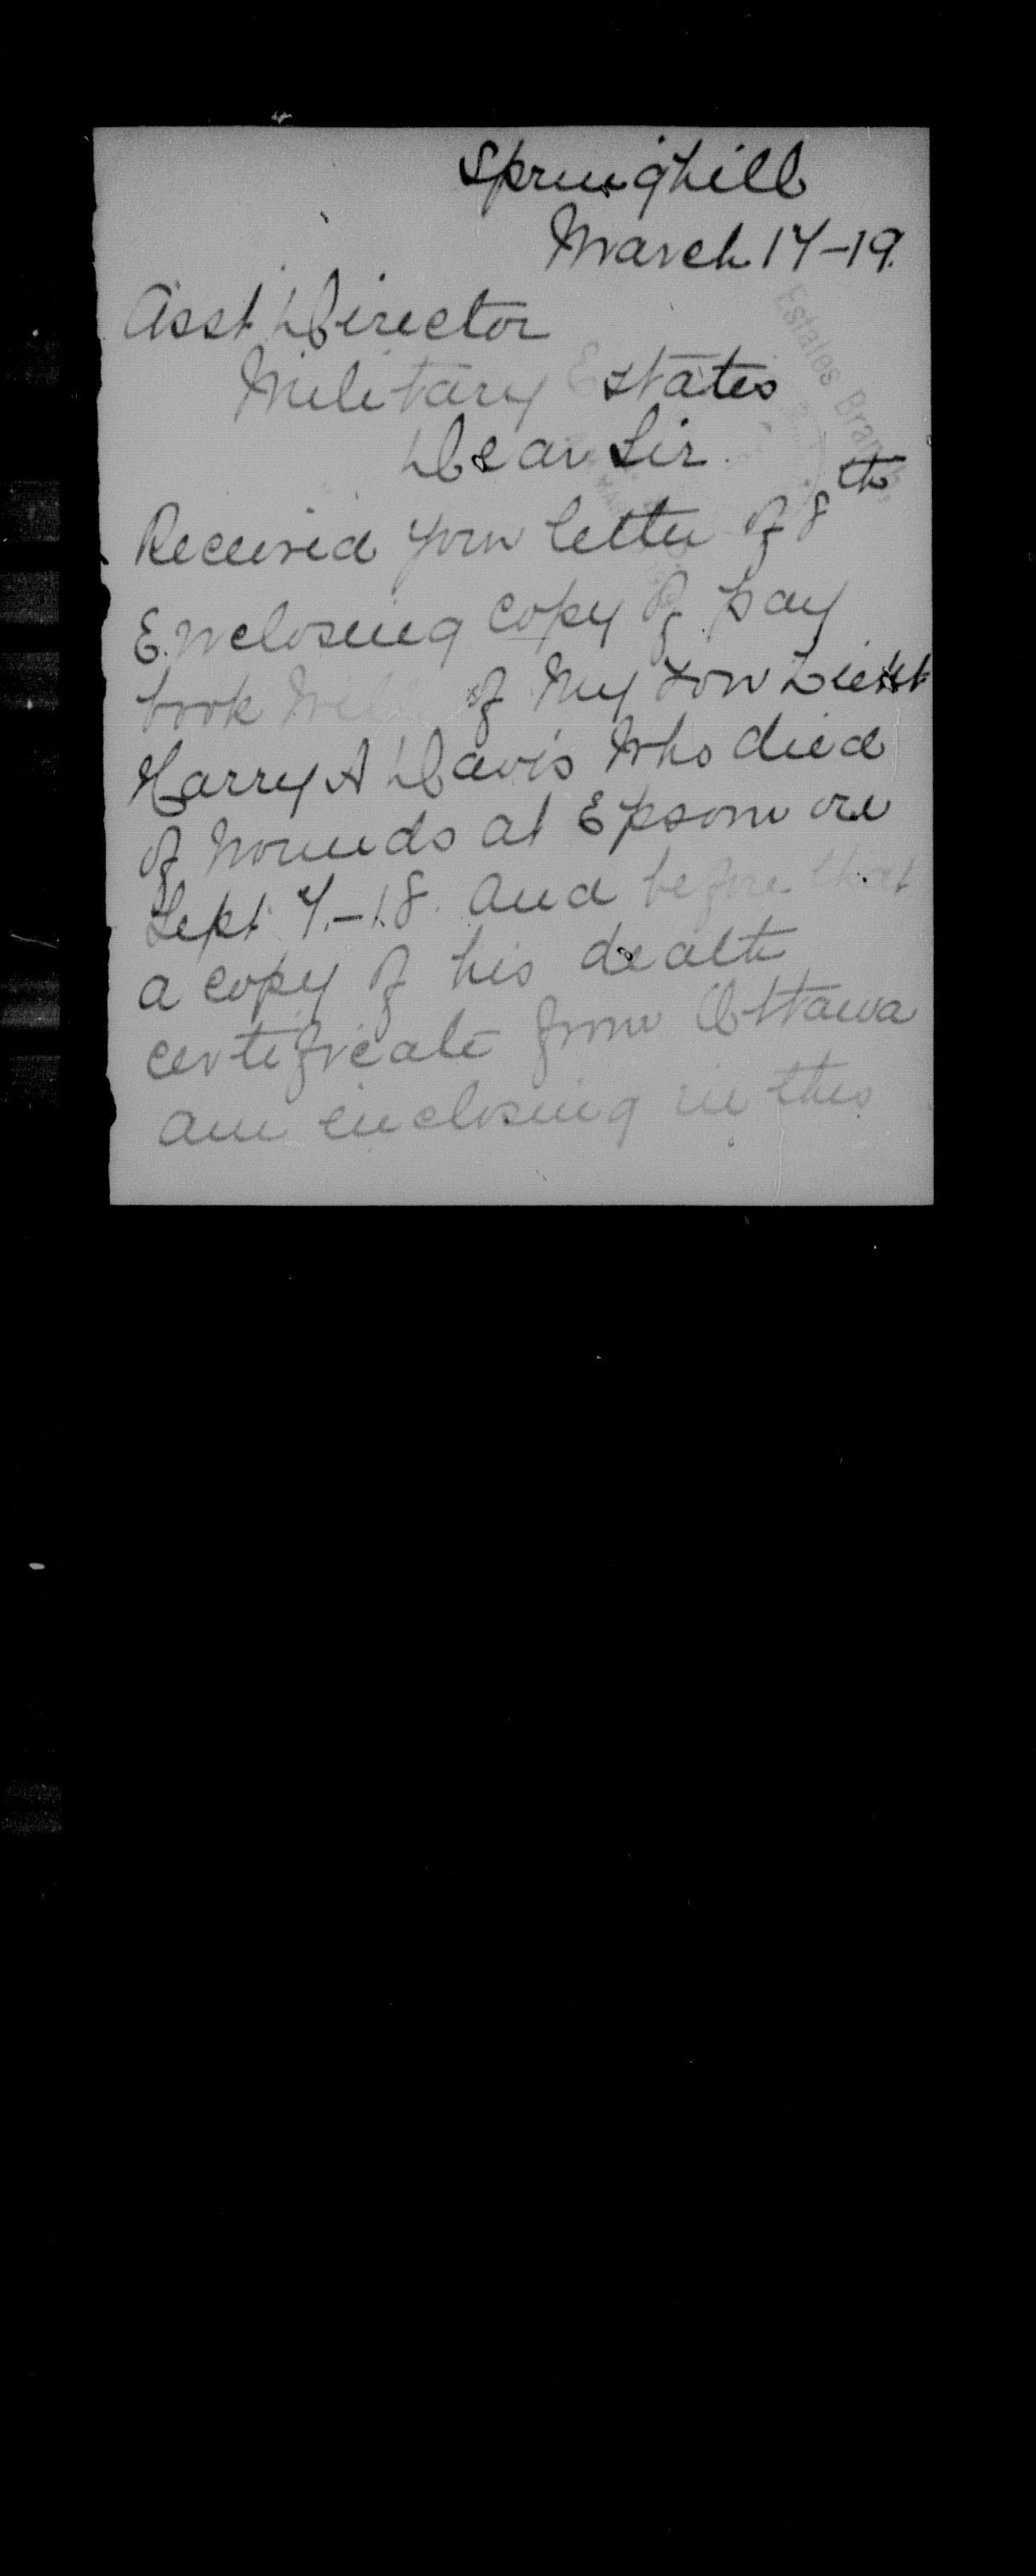 Springhill
March 17-19.
Asst Director
Military Estates
Dear Sir.
Estates Branch
Received your letter of 8th
Enclosing copy of pay
book Will of My son Lieut
Harry A Davis Who died
of Wounds at Epsom on
Sept 7.-18. and before that
a copy of his death
certificate from Ottawa
am enclosing in this